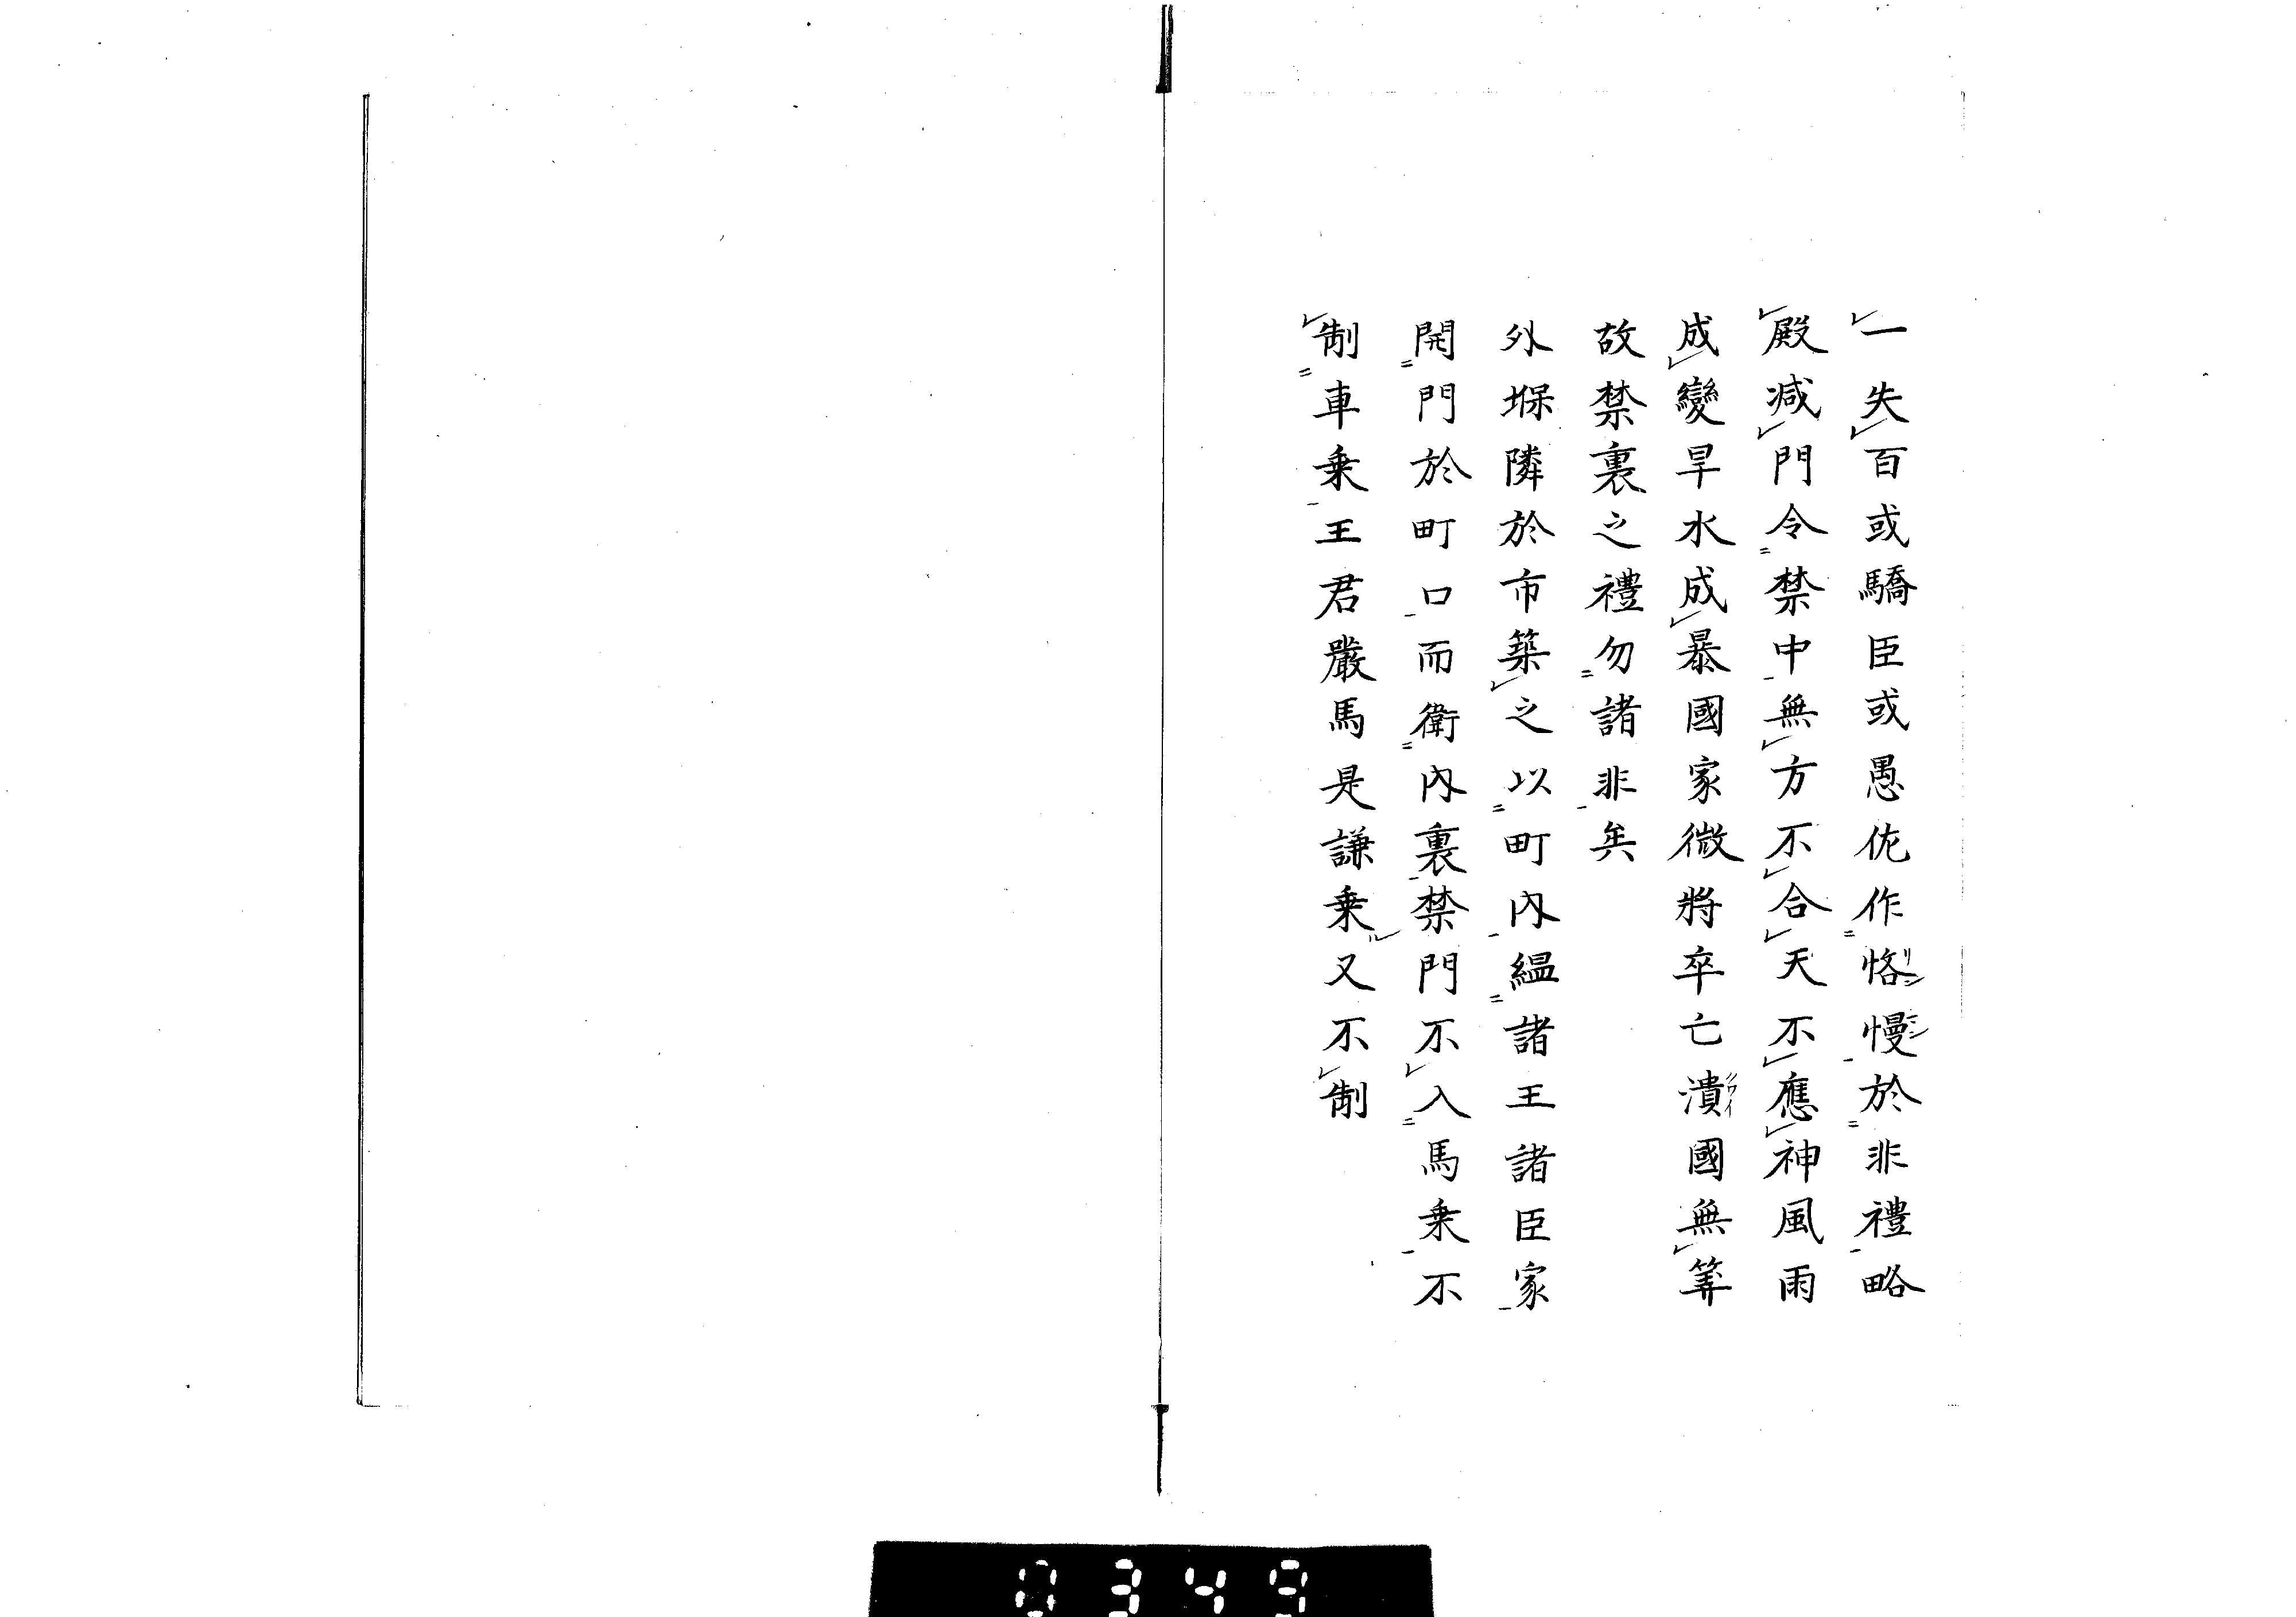 一失百或驕臣或愚佐作恡慢於非禮略
殿減門令禁中無方不合天不應神風雨
成變旱水成暴國家微將卒亡潰國無筭
故禁裏之禮勿諸非矣
外堢隣於市築之以町內緼諸王諸臣家
開門於町口而衛內裏禁門不入馬乗不
制車乗王君嚴馬是謙乗又不制
0349